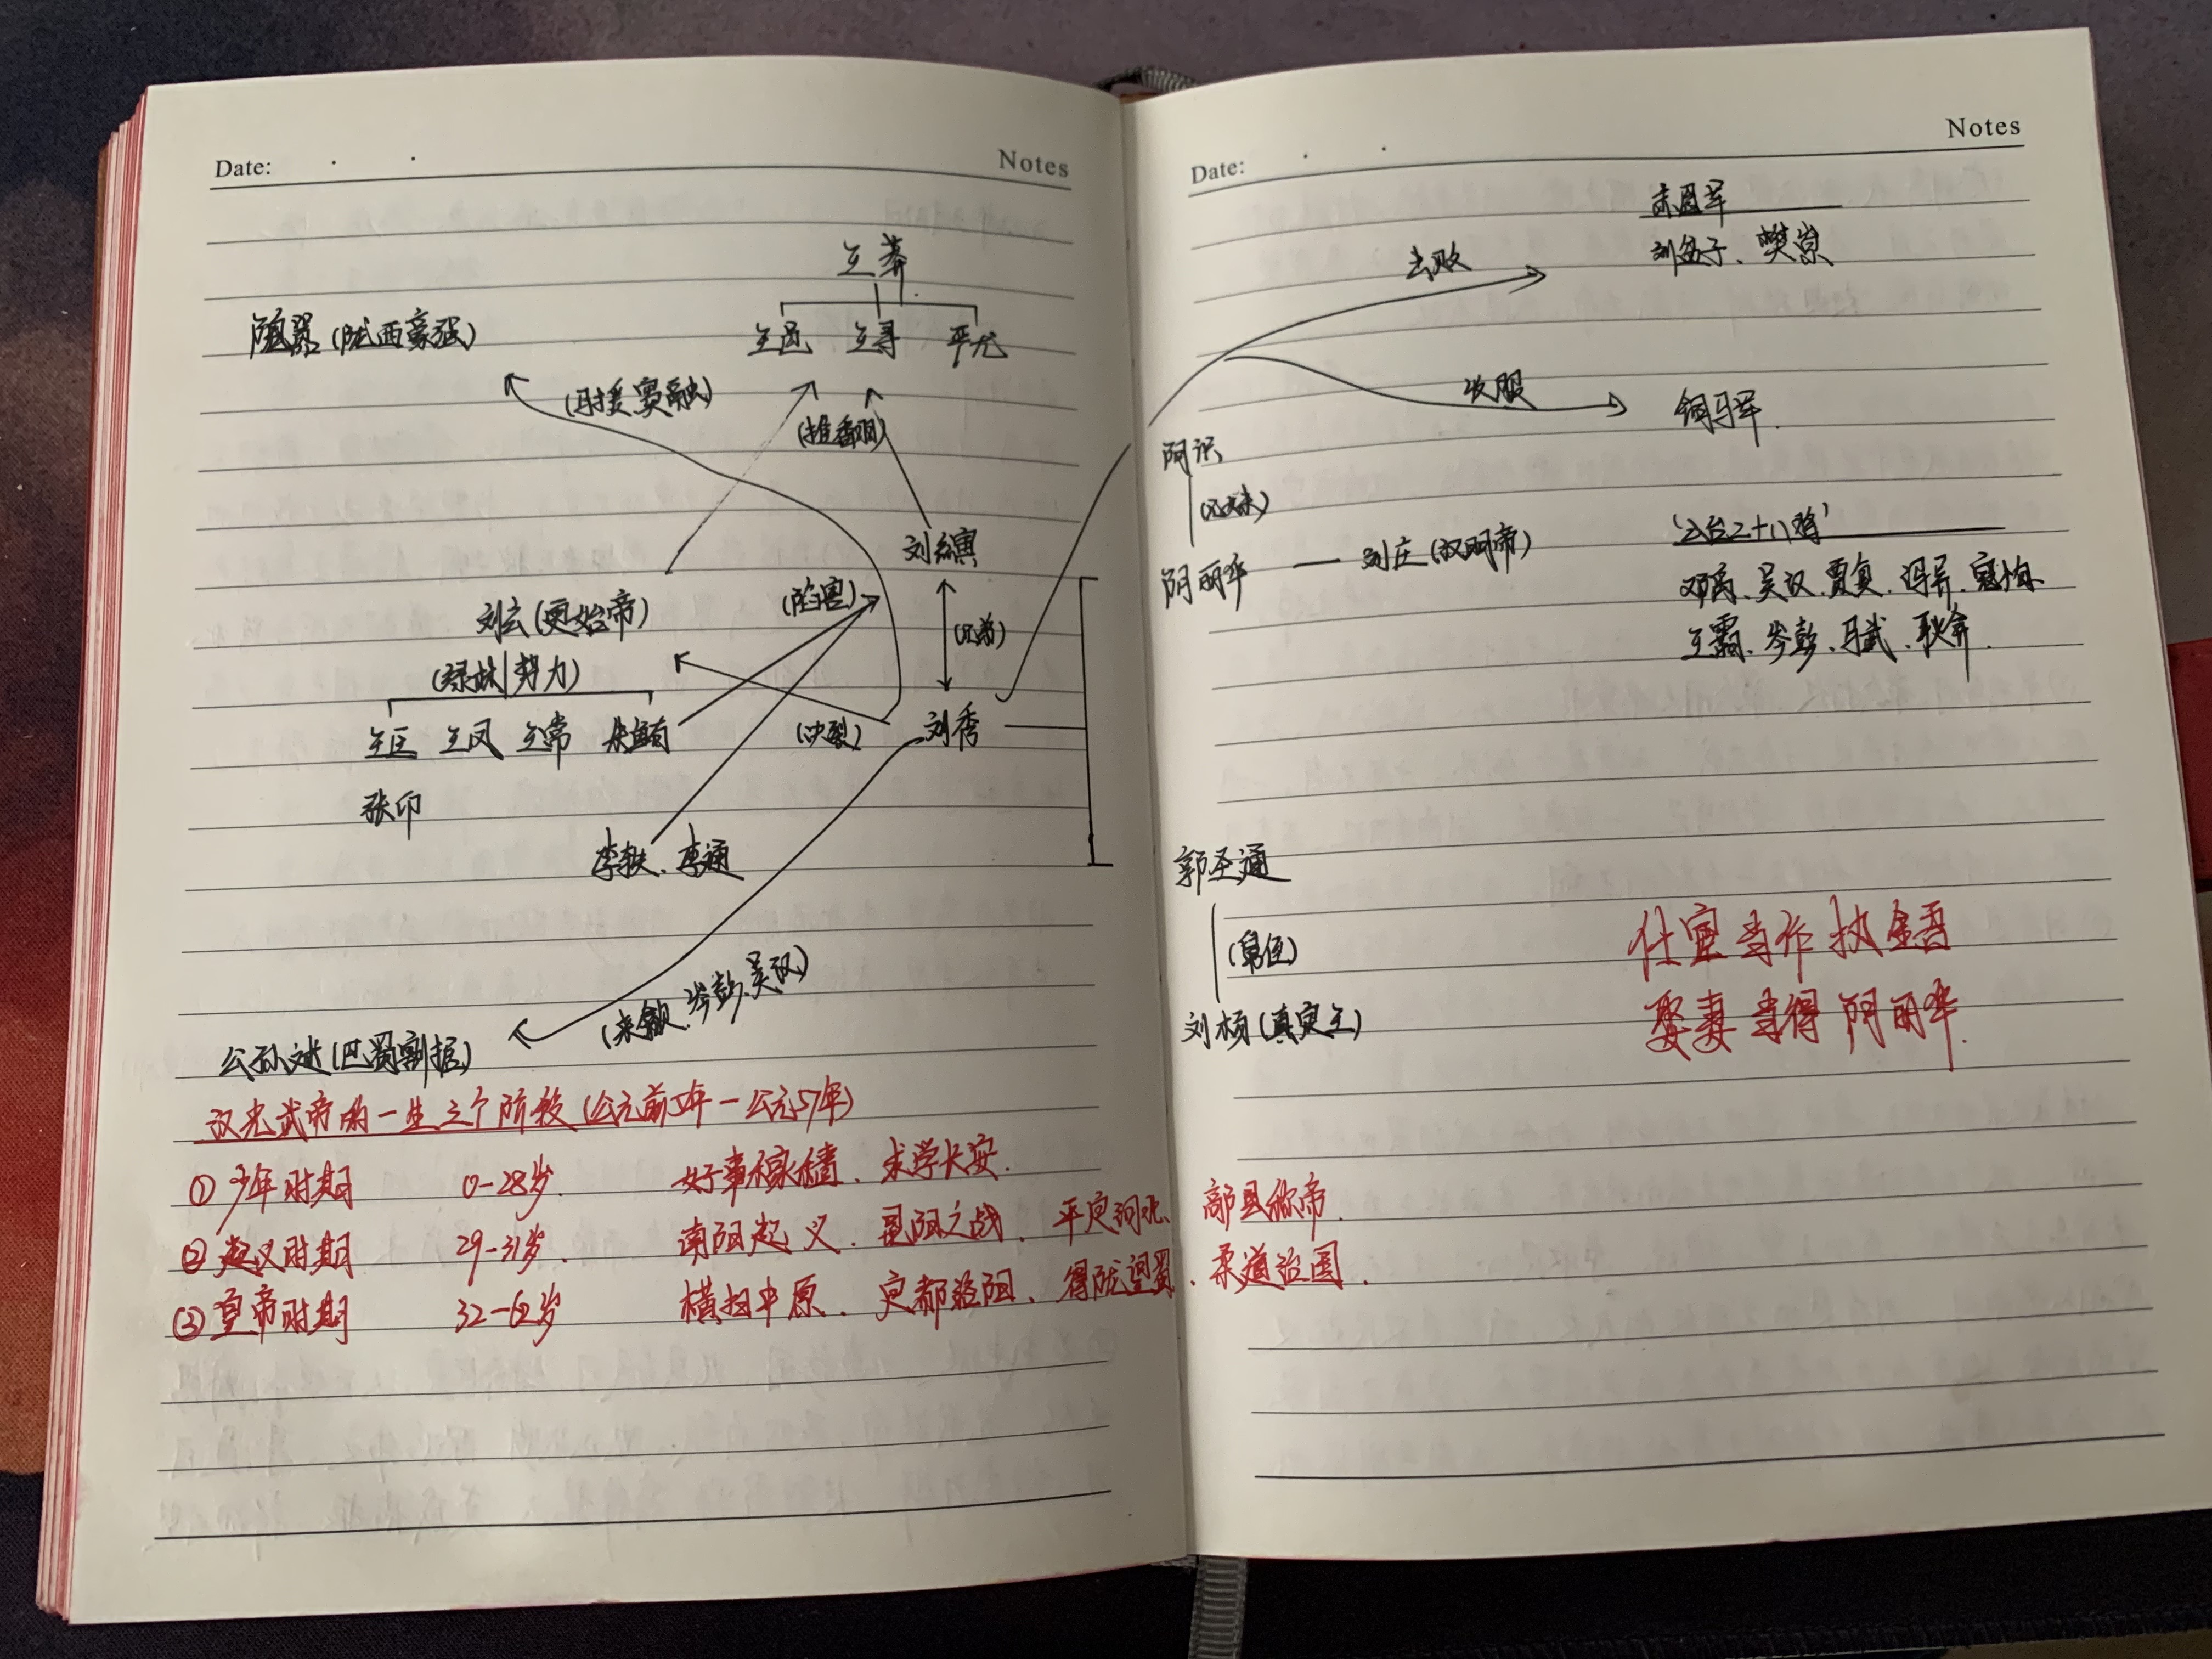 Date:
Notes
王莽
隗嚣(陇西豪强)
王邑 王寻 严尤
(马援、窦融)
(推翻)
刘縯
刘玄(更始帝)
(陷害)
(兄弟)
(绿林势力)
王匡 王凤 王常 朱鲔
(决裂)
刘秀
张卬
李轶、李通
(来歙、岑彭、吴汉)
公孙述(巴蜀割据)
汉光武帝的一生三个阶段(公元前5年-公元57年)
① 少年时期 0-28岁. 好事稼穑、求学长安.
② 起义时期 29-31岁. 南阳起义. 昆阳之战、平定河北、鄗县称帝.
③ 皇帝时期 32-62岁 横扫中原. 定都洛阳、得陇望蜀、柔道治国.
Date:
Notes
赤眉军
刘盆子、樊崇
击败
收服
铜马军.
阴识
(兄妹)
阴丽华 — 刘庄(汉明帝)
'云台二十八将'
邓禹、吴汉、贾复、冯异、寇恂、
王霸、岑彭、马武、耿弇.
郭圣通
(舅侄)
刘杨(真定王)
仕宦当作执金吾
娶妻当得阴丽华.